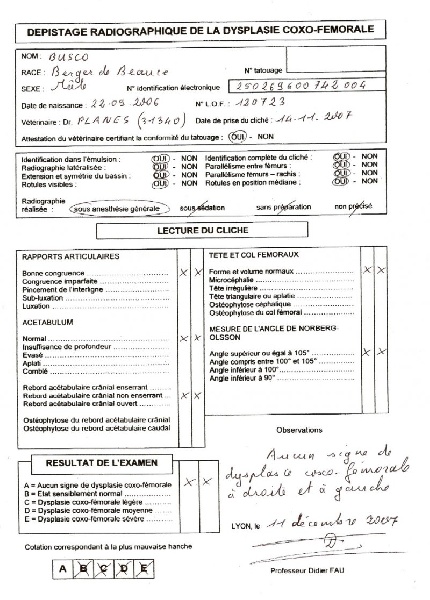 DEPISTAGE RADIOGRAPHIQUE DE LA DYSPLASIE COXO-FEMORALE
NOM : BUSCO
RACE : Berger de Beauce N° tatouage :
SEXE : Mâle N° identification électronique 250269600742004
Date de naissance : 22.09.2006 N° L.O.F. : 120723
Vétérinaire : Dr. PLANES (31340) Date de prise du cliché : 14.11.2007
Attestation du vétérinaire certifiant la conformité du tatouage : OUI - NON
Identification dans l'émulsion : OUI - NON Identification complète du cliché : OUI - NON
Radiographie latéralisée : OUI - NON Parallélisme entre fémurs : OUI - NON
Extension et symétrie du bassin : OUI - NON Parallélisme fémurs – rachis : OUI - NON
Rotules visibles : OUI - NON Rotules en position médiane : OUI - NON
Radiographie
réalisée : sous anesthésie générale sous sédation sans préparation non précisé
LECTURE DU CLICHE
RAPPORTS ARTICULAIRES
Bonne congruence X X
Congruence imparfaite
Pincement de l'interligne
Sub-luxation
Luxation
ACETABULUM
Normal X X
Insuffisance de profondeur
Evasé
Aplati
Comblé
Rebord acétabulaire crânial enserrant
Rebord acétabulaire crânial non enserrant X X
Rebord acétabulaire crânial ouvert
Ostéophytose du rebord acétabulaire crânial
Ostéophytose du rebord acétabulaire caudal
TETE ET COL FEMORAUX
Forme et volume normaux X X
Microcéphalie
Tête irrégulière
Tête triangulaire ou aplatie
Ostéophytose céphalique
Ostéophytose du col fémoral
MESURE DE L'ANGLE DE NORBERG-
OLSSON
Angle supérieur ou égal à 105° X X
Angle compris entre 100° et 105°
Angle inférieur à 100°
Angle inférieur à 90°
RESULTAT DE L'EXAMEN
A = Aucun signe de dysplasie coxo-fémorale X X
B = Etat sensiblement normal
C = Dysplasie coxo-fémorale légère
D = Dysplasie coxo-fémorale moyenne
E = Dysplasie coxo-fémorale sévère
Cotation correspondant à la plus mauvaise hanche
A B C D E
Observations
Aucun signe de
dysplasie coxo-fémorale
à droite et à gauche
LYON, le 11 décembre 2007
Professeur Didier FAU